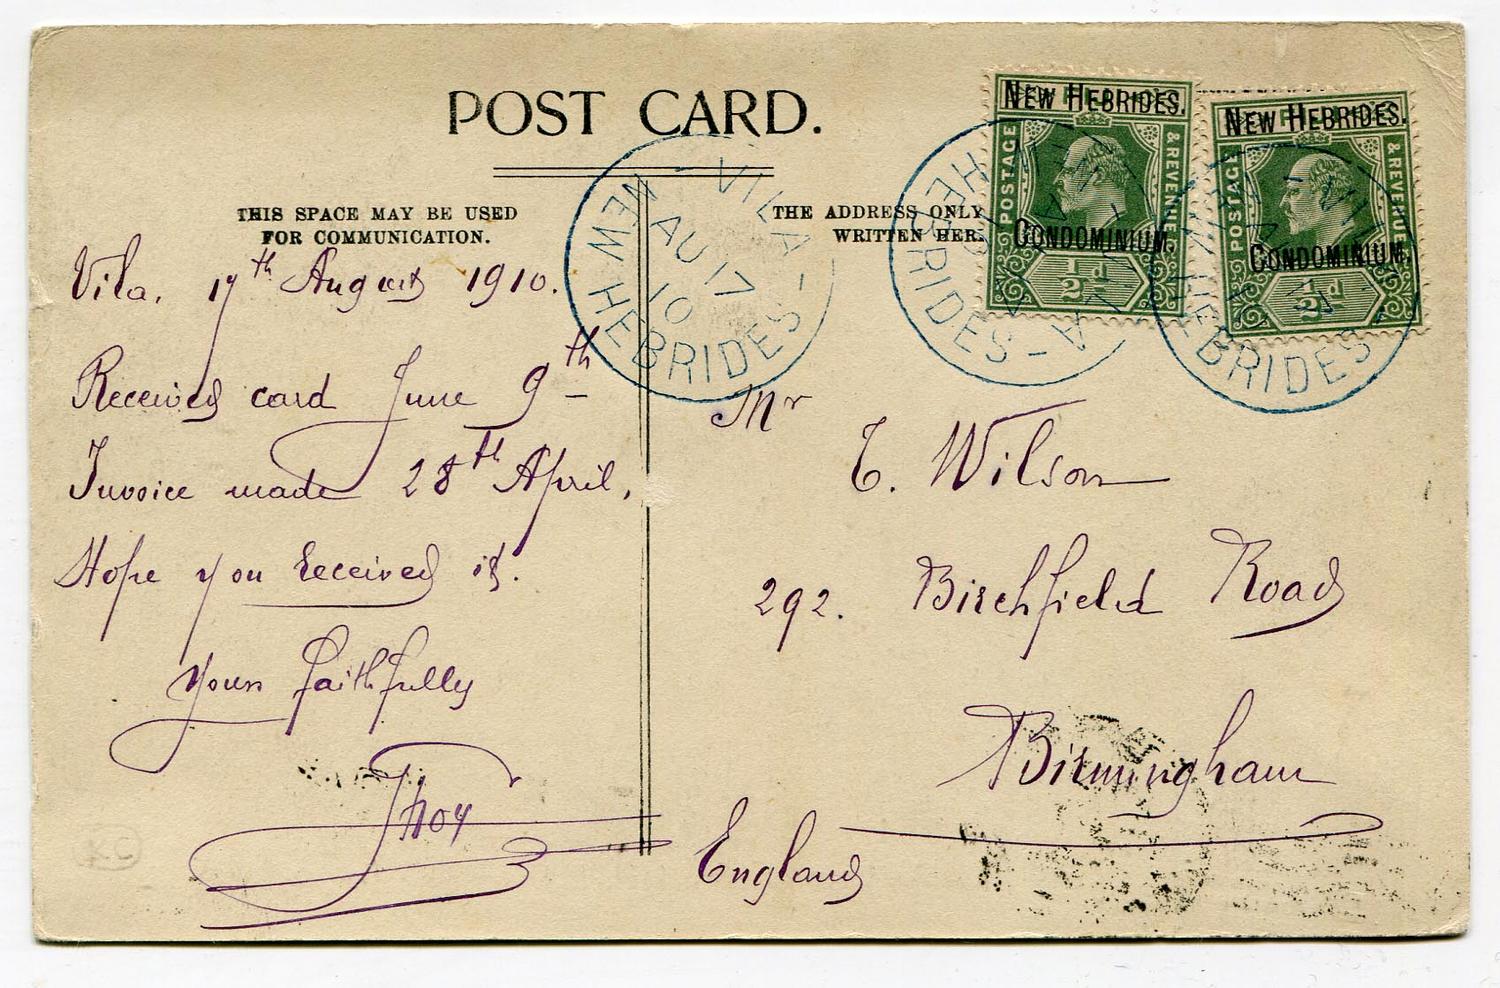 POST CARD.
THIS SPACE MAY BE USED
FOR COMMUNICATION.
THE ADDRESS ONLY
WRITTEN HER
Vila, 17th August 1910.
Received card June 9th
Invoice made 28th April,
Hope you received it.
Yours faithfully
Mr
E. Wilson
292. Birchfield Road
Birmingham
England
VILA
AU 17
10
NEW HEBRIDES
NEW HEBRIDES.
POSTAGE & REVENUE
CONDOMINIUM.
½d
NEW HEBRIDES.
POSTAGE & REVENUE
CONDOMINIUM.
½d
HEBRIDES
HEBRIDES